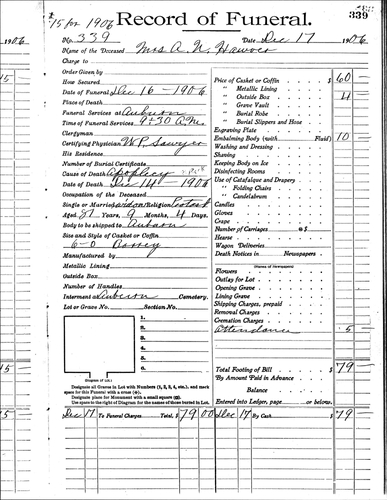 15 for 1906
Record of Funeral.
339
1906
No. 339
Date Dec 17 1906
Name of the Deceased Mrs A. N. Hawver
Charge to
Order Given by
How Secured
Date of Funeral Dec 16 - 1906
Place of Death
Funeral Services at Auburn
Time of Funeral Services 9+30 A.M.
Clergyman
Certifying Physician W P. Sawyer
His Residence
Number of Burial Certificate
Cause of Death Apoplexy
Date of Death Dec 14 - 1906
Occupation of Deceased
Single or Married Widow Religion Protest
Aged 81 Years, 9 Months, 4 Days.
Body to be shipped to Auburn
Size and Style of Casket or Coffin
6-0
Manufactured by
Metallic Lining
Outside Box
Number of Handles
Interment at Auburn Cemetery.
Lot or Grave No. Section No.
1.
2.
3.
4.
5.
6.
(Diagram of Lot.)
Designate all Graves in Lot with Numbers (1, 2, 3, 4, etc.), and mark
space for this Funeral with a cross (+).
Designate place for Monument with a small square (□).
Use space to right of Diagram for the names of those buried in Lot.
Price of Casket or Coffin $ 60 -
" Metallic Lining
" Outside Box 4
" Grave Vault
" Burial Robe
" Burial Slippers and Hose
Engraving Plate
Embalming Body (with Fluid) 10
Washing and Dressing
Shaving
Keeping Body on Ice
Disinfecting Rooms
Use of Catafalque and Drapery
" Folding Chairs
" Candelabrum
Candles
Gloves
Crape
Number of Carriages @ $
Hearse
Wagon Deliveries
Death Notices in Newspapers
(Names of Newspapers)
Flowers
Outlay for Lot
Opening Grave
Lining Grave
Shipping Charges, prepaid
Removal Charges
Cremation Charges
Attendance 5 -
Total Footing of Bill $ 79 -
By Amount Paid in Advance
Balance
Entered into Ledger, page or below.
Dec 17 To Funeral Charges Total, $ 79 00 Dec 17 By Cash $ 79